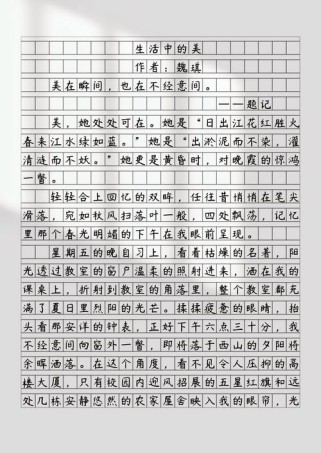 生活中的美
作者：魏琪
美在瞬间，也在不经意间。
——题记
美，她处处可在。她是“日出江花红胜火，
春来江水绿如蓝。”她是“出淤泥而不染，濯
清涟而不妖。”她更是黄昏时，对晚霞的惊鸿
一瞥。
轻轻合上回忆的双眸，任往昔悄悄在笔尖
滑落，宛如秋风扫落叶一般，四处飘荡，记忆
里那个春光明媚的下午在我眼前呈现。
星期五的晚自习上，看着枯燥的名著，阳
光透过教室的窗户温柔的照射进来，洒在我的
课桌上，折射到教室的角落里，整个教室都充
满了夏日里烈阳的光芒。揉揉疲惫的眼睛，抬
头看那安详的钟表，正好下午六点三十分，我
不经意间向窗外一瞥，即将落于西山的夕阳将
余晖洒落。在这个角度，看不见令人压抑的高
楼大厦，只有校园内迎风招展的五星红旗和远
处几栋安静悠然的农家屋舍映入我的眼帘，光